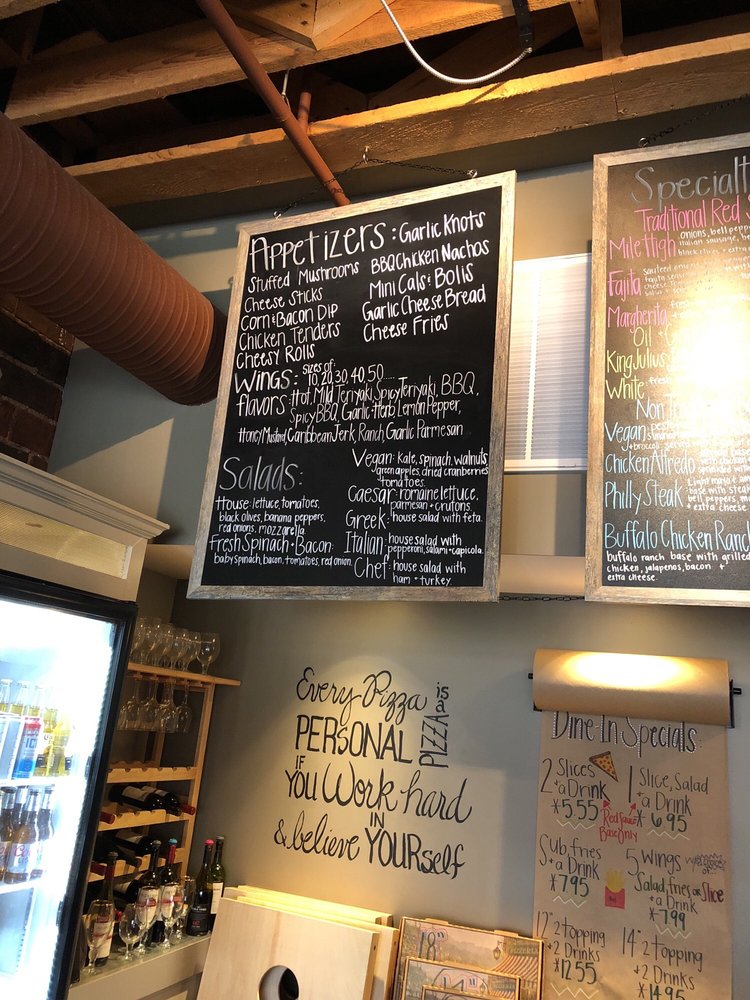 Appetizers: Garlic Knots
Stuffed Mushrooms
Cheese Sticks
Corn & Bacon Dip
Chicken Tenders
Cheesy Rolls
BBQ Chicken Nachos
Mini Cals & Bolis
Garlic Cheese Bread
Cheese Fries
Wings: sizes of:
10, 20, 30, 40, 50.....
flavors: Hot, Mild, Teriyaki, Spicy Teriyaki, BBQ,
Spicy BBQ, Garlic Herb, Lemon Pepper,
Honey Mustard, Caribbean Jerk, Ranch, Garlic Parmesan
Salads:
House: lettuce, tomatoes,
black olives, banana peppers,
red onions, mozzarella.
Fresh Spinach + Bacon:
baby spinach, bacon, tomatoes, red onion.
Vegan: kale, spinach, walnuts
green apples, dried cranberries
+ tomatoes.
Caesar: romaine lettuce,
parmesan + crutons.
Greek: house salad with feta.
Italian: house salad with
pepperoni, salami + capicola.
Chef: house salad with
ham + turkey.
Specialt
Traditional Red
Mile High onions, bell peppe
italian sausage, be
black olives + extra
Fajita
Margherita
Oil +
King Julius
White fresh
Non
Vegan
+ broccoli
Chicken Alfredo
Philly Steak: base with steak
bell peppers, m
+ extra cheese
Buffalo Chicken Ranch
buffalo ranch base with grilled
chicken, jalapenos, bacon +
extra cheese.
Every Pizza is a
PERSONAL PIZZA
IF
YOU Work hard
IN
& believe YOURself
Dine-In Specials:
2 Slices
+ a Drink
*5.55
1 Slice, Salad
+ a Drink
*6.95
Red Sauce
Base Only
Sub, fries
+ a Drink
*7.95
5 Wings
Salad, fries or Slice
+ a Drink
*7.99
12" 2 topping
+ 2 Drinks
*12.55
14" 2 topping
+ 2 Drinks
*14.95
18"
14"